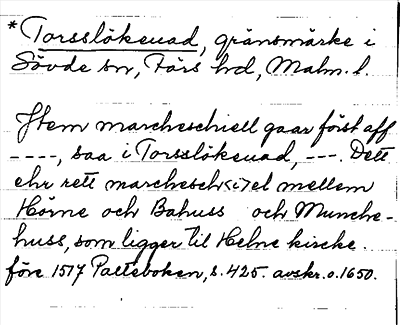 *Torsslökeuad, gränsmärke i
Sövde sn, Färs hd, Malm. l.
Jtem marcheschiell gaar först aff
----, saa i Torsslökeuad, ---. Dett
ehr rett marchesch<i>el mellem
Hörne och Bahuss och Munche-
huss, som ligger til Helne kircke.
före 1517 Palteboken, s. 425. avskr. o. 1650.